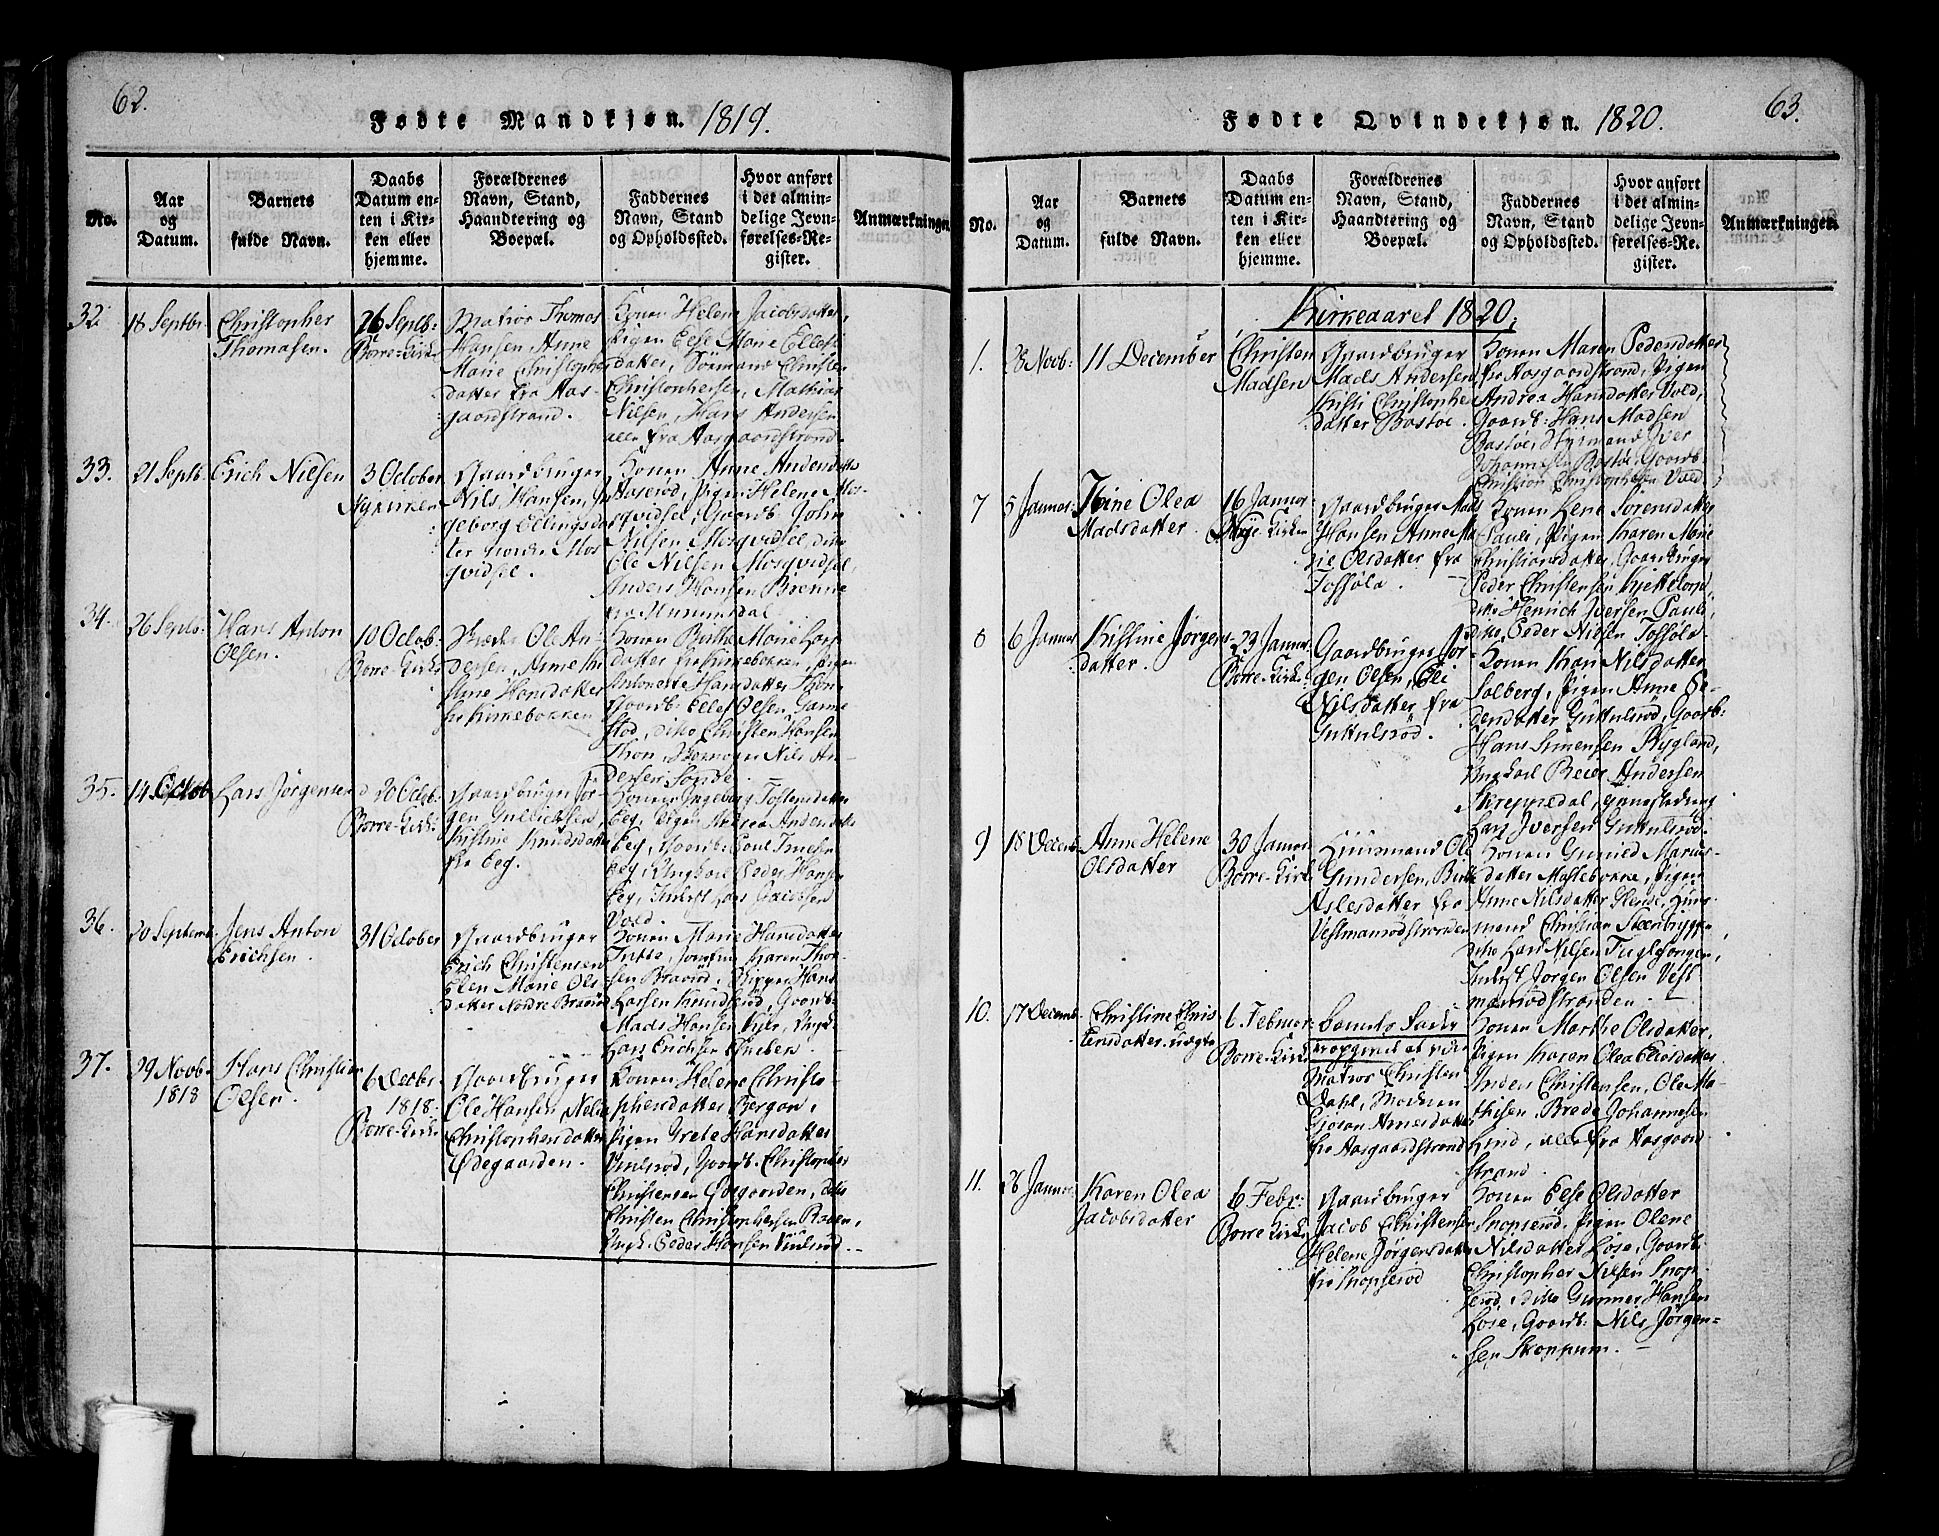 62.
Fødte Mandkjøn. 1819.
No.
Aar
og
Datum.
Barnets
fulde Navn.
Daabs
Datum en-
ten i Kir-
ken eller
hjemme.
Forældrenes
Navn, Stand,
Haandtering og
Boepæl.
Faddernes
Navn, Stand
og Opholdssted.
Hvor anført
i det almin-
delige Jevn-
førelses-Re-
gister.
Anmærkninger
32.
18 Septbr
Christopher
Thomasen.
26 Septb:
Borre-Kirke
Matros Thomas
Hansen, Anne
Marie Christophers
datter fra Aas-
gaardstrand.
Konen Helene Jacobsdatter,
Pigen Else Marie Ellefs
datter, Christen
Christophersen, Mathias
Nilsen, Hans Andersen
alle fra Aasgaardstrand.
33.
21 Septb.
Erich Nilsen
3 October
Nykirken
Gaardbruger
Nils Hansen, In
geborg Ellingsdat
ter nordre Mos
qvidsel.
Konen Anne Andersdatter
Aaserød, Pigen Helene Mos
qvidsel, Gaardb. John
Nilsen Mosqvidsel, ditto
Ole Nilsen Mosqvidsel,
Anders Hansen Brenne
34.
26 Septb.
Hans Anton
Olsen.
10 Octob.
Borre-Kirke
Ole An-
dersen, Anne Kir
stine Hansdatter
fra Kirkebakken
Konen Birthe Marie Lars
datter fra Kirkebakken, Pigen
Antonette Hansdatter Thon,
Gaardb. Ellef Olsen Ganne
stad, ditto Christen Hansen
Thon, Nils An-
dersen Sande.
35.
14 Octob.
Lars Jørgensen
20 Octob.
Borre-Kirke
Gaardbruger Jør-
gen Gullichsen
Kistine Knudsdatter
fra Eeg.
Konen Ingeborg Tostensdatter
Eeg, Pigen Andrea Andersdatter
Eeg, Gaardb. Poul Iversen
Eeg, Ungkarl Peder Hansen
Eeg, Inderst Lars Jacobsen
Vold.
36.
20 Septemb.
Jens Anton
Erichsen.
31 October
Gaardbruger
Erich Christensen
Elen Marie Ols
datter Nordre Braarød
Konen Marie Hansdatter
Karen Thor-
sen Braarød, Hans
Larsen Knudsrød, Gaardb.
Mads Hansen Kjær, Ungk.
Lars Erichsen
37.
29 Novb.
1818
Hans Christian
Olsen.
6 Decbr.
1818.
Borre-Kirke
Gaardbruger
Ole Hansen, Nelia
Christophersdatter
Ødegaarden.
Konen Helene Christo-
phersdatter Bergan,
Pigen Grete Hansdatter
Viulsrød, Gaardb. Christopher
Christensen Ødegaarden, ditto
Christen Christophersen Raaen,
Ungk. Peder Hansen Viulsrød.
63.
Fødte Qvindekjøn. 1820.
No.
Aar
og
Datum.
Barnets
fulde Navn.
Daabs
Datum en-
ten i Kir-
ken eller
hjemme.
Forældrenes
Navn, Stand,
Haandtering og
Boepæl.
Faddernes
Navn, Stand
og Opholdssted.
Hvor anført
i det almin-
delige Jevn-
førelses-Re-
gister.
Anmærkninger.
Kirkeaaret 1820.
1.
28 Novb:
11 December
Christen
Madsen
Gaardbruger
Mads Andersen,
Kisti Christophers
datter Bastøe.
Konen Maren Pedersdatter
fra Aasgaardstrand, Pigen
Andrea Hansdatter Vold,
Gaardb: Hans Madsen
Bastøe, Styrmand Iver
Johannesen Bastøe, Gaardb.
Christian Christophersen Vold
7
5 Januar.
Thine Olea
Madsdatter.
16 Januar
Nye-Kirken
Gaardbruger Mads
Hansen Anne Ma
rie Olsdatter fra
Fossøla.
Konen Lene Sørensdatter
Pauli, Pigen Karen Marie
Christiansdatter, Gaardbruger
Peder Christensen Kjettelord,
ditto Henrich Iversen Pauli,
ditto Peder Nilsen Fossøla.
8
6 Januar
Kistine Jørgens-
datter.
23 Januar
Borre-Kirke
Gaardbruger Jør-
gen Olsen, Eli
Nilsdatter fra
Guttulsrød.
Konen Kari Nilsdatter
Solberg, Pigen Anne Pe-
dersdatter Guttulsrød, Gaardb:
Hans Simensen Rygland,
Ungkarl Reier Andersen
Skreppedal, gamgledreng
Lars Iversen Guttulsrød.
9
18 Decemb.
Anne Helene
Olsdatter
30 Januar
Borre-Kirke
Huusmand Ole
Gundersen, Birthe
Aslesdatter fra
Vestmanrødstranden
Konen Gunild Marius-
datter Mastebakke, Pigen
Anne Nilsdatter Hende, Huus-
mand Christian Steenbryggen
ditto Carl Nilsen Fuglgongen,
Inderst Jørgen Olsen Vest
manrødstranden.
10.
17 Decemb.
Christine Chris
tensdatter. uægte
6 Februar
Borre-Kirke
Barnets Fader
er opgivet at være
Matros Christen
Dahl, Moderen
Gjøran Arnesdatter
fra Aasgaardstrand
Konen Marthe Olsdatter,
Pigen Karen Olea Eliasdatter
Anders Christensen, Ole Ma-
thisen, Brede Johannesen
Lind, alle fra Aasgaard
strand.
11.
28 Januar
Karen Olea
Jacobsdatter
6 Febr.
Borre-Kirke
Gaardbruger
Jacob Christensen
Helene Jørgensdatter
fra Snopserød
Konen Else Olsdatter
Snopserød, Pigen Olene
Nilsdatter Løse, Gaardb.
Christopher Nilsen Snop
serød, ditto Gunner Hansen
Løse, Gaardb: Nils Jørgen-
sen Skoppum.